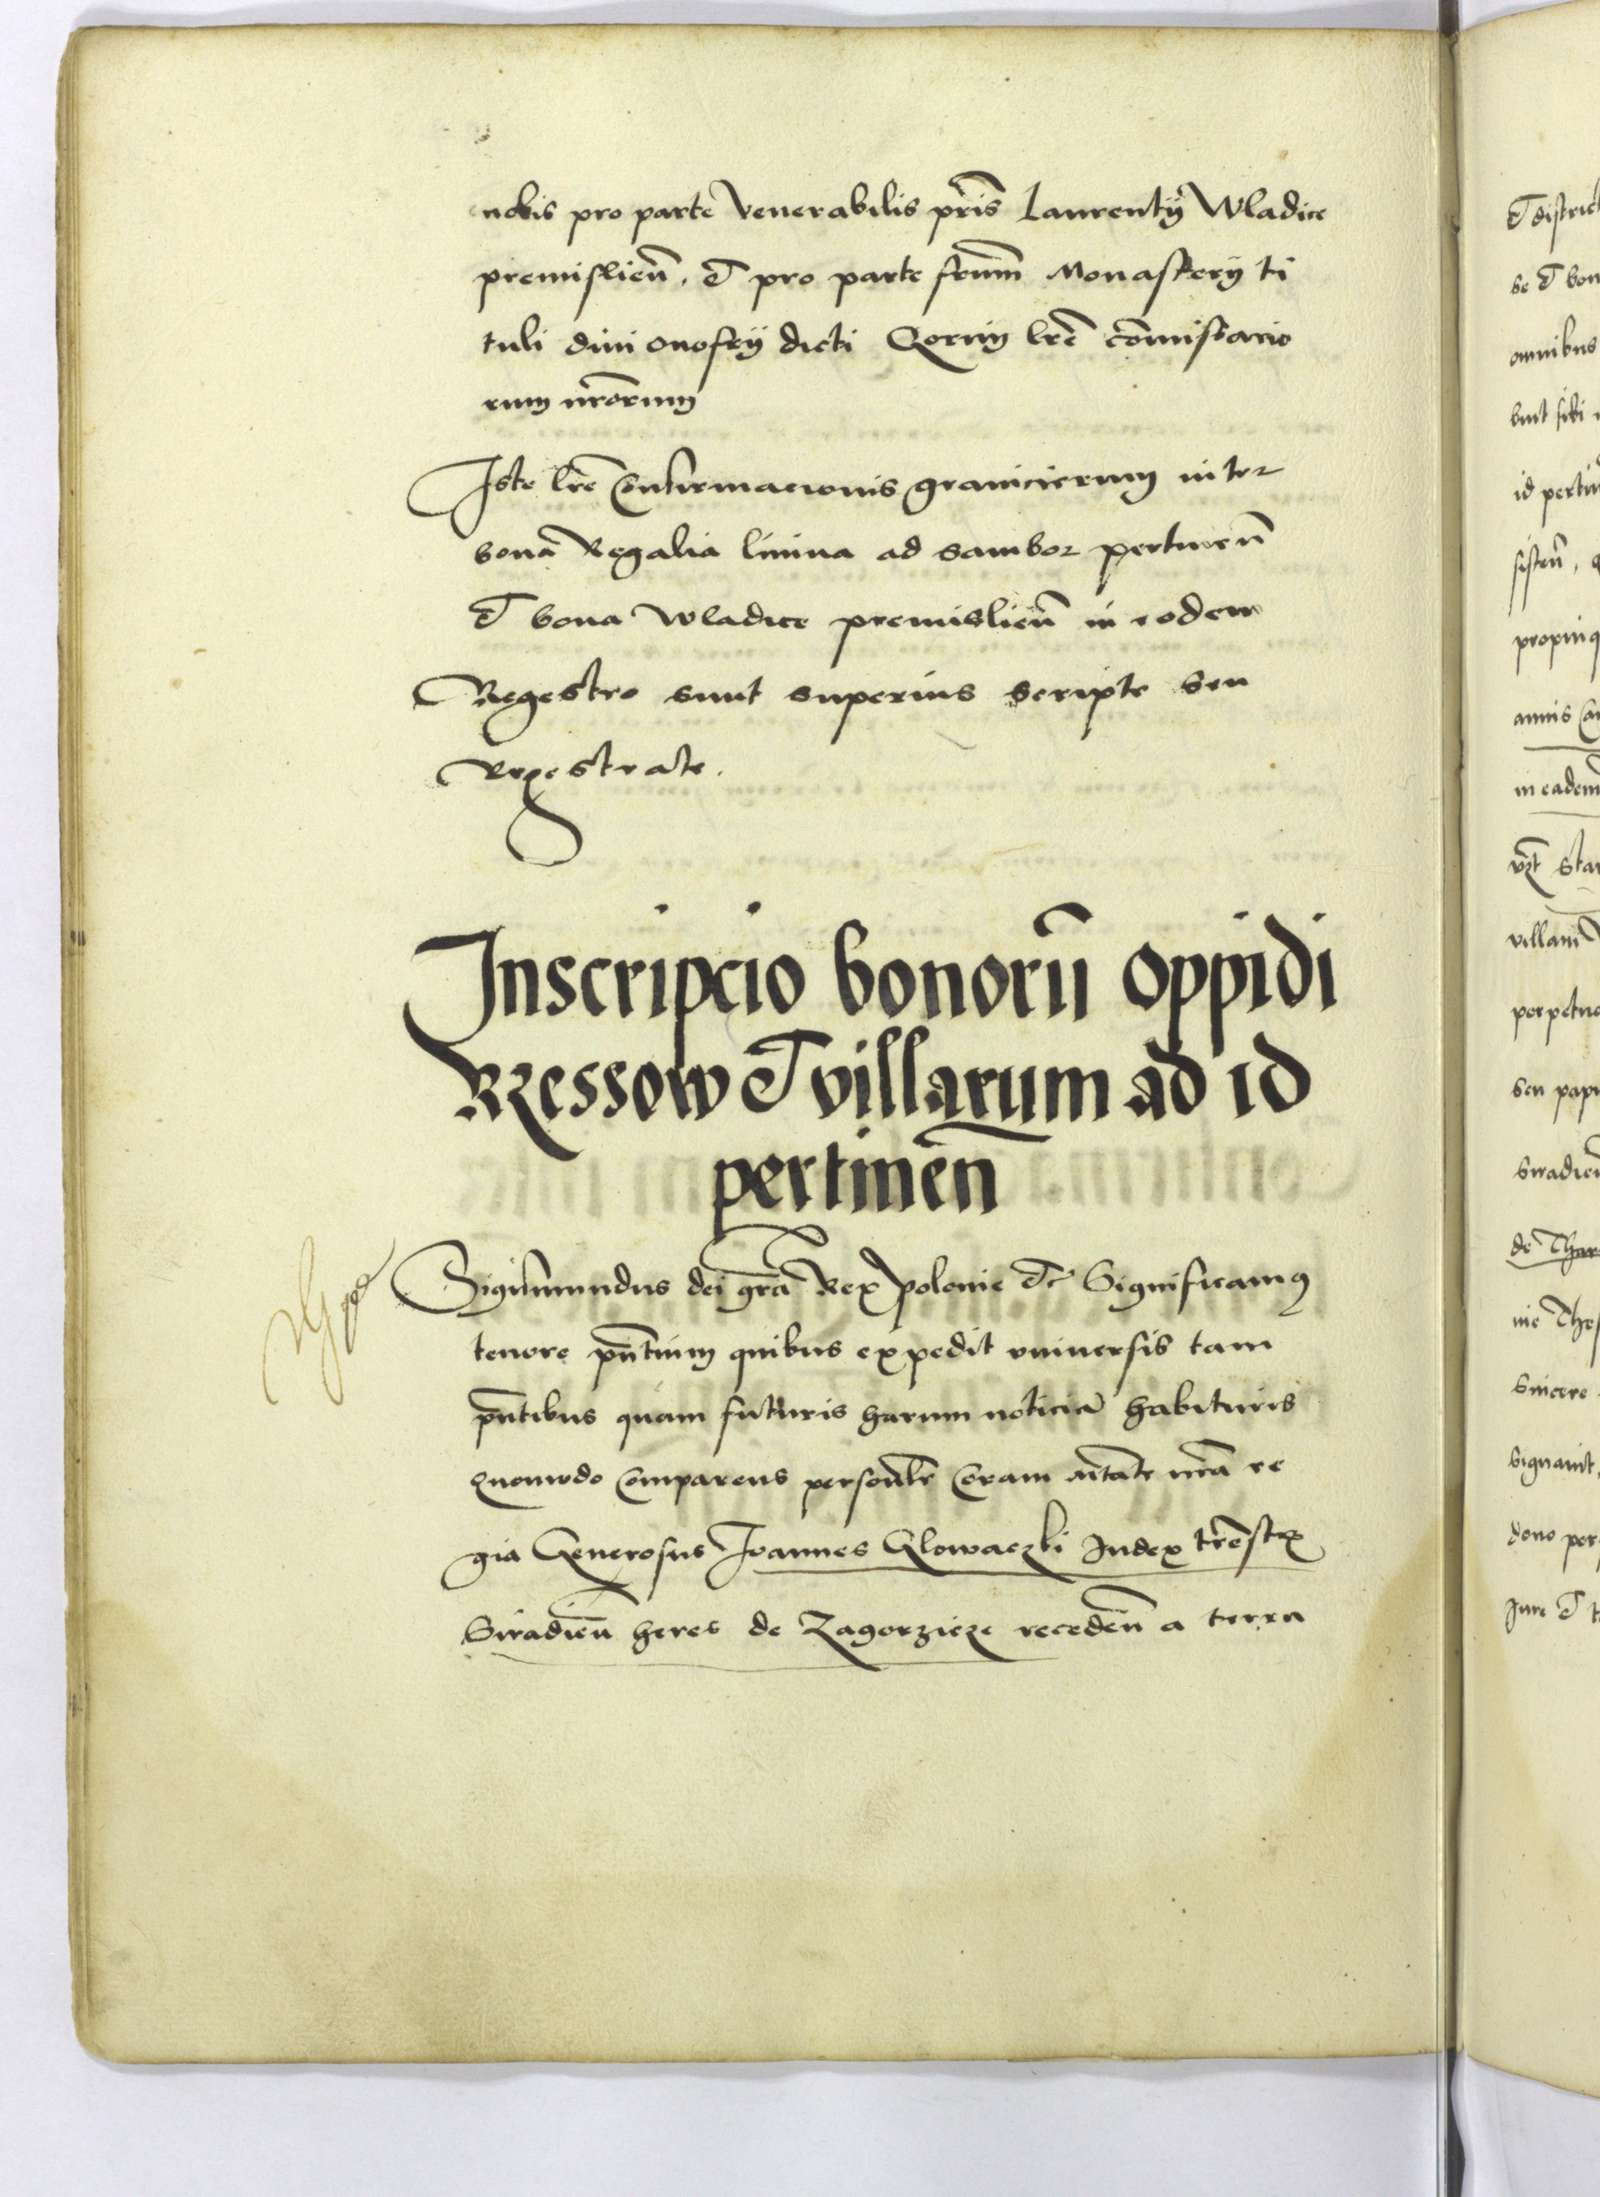 nobis pro parte venerabilis pr̃is Laurentÿ Wladice
premislień. Et pro parte fr̃um Monasterÿ ti
tuli diui Onofrÿ dicti Qorum lr̃e com̃issario
rum nr̃orum
Iste lr̃e Confirmacionis granicierum inter
bona Regalia limina ad Sambor pertineñ
Et bona Wladice premislień in eodem
Regestro sunt superius scripte seu
Regestrate.
Inscripcio bonorũ oppidi
Rzessow Et villarum ad id
pertineñ
Sigismundus dei gr̃a Rex polonie Etc̃ Significamus
tenore pñtium quibus expedit vniuersis tam
pñtibus quam futuris harum noticiã habituris
Quomodo Comparens personalr̃ Coram mtate nr̃a re
gia Generosus Ioannes Glowaczki Iudex terrestris
Siradień heres de Zagorzicze recedeñ a terra
Et district
se Et bon
omnibus
bint sibi
id pertin
sisteñ,
propinq
in eadem
villam
perpetuo
seu papi
Siradień
de
Sincere
Signauit
dono per
Iure Et t